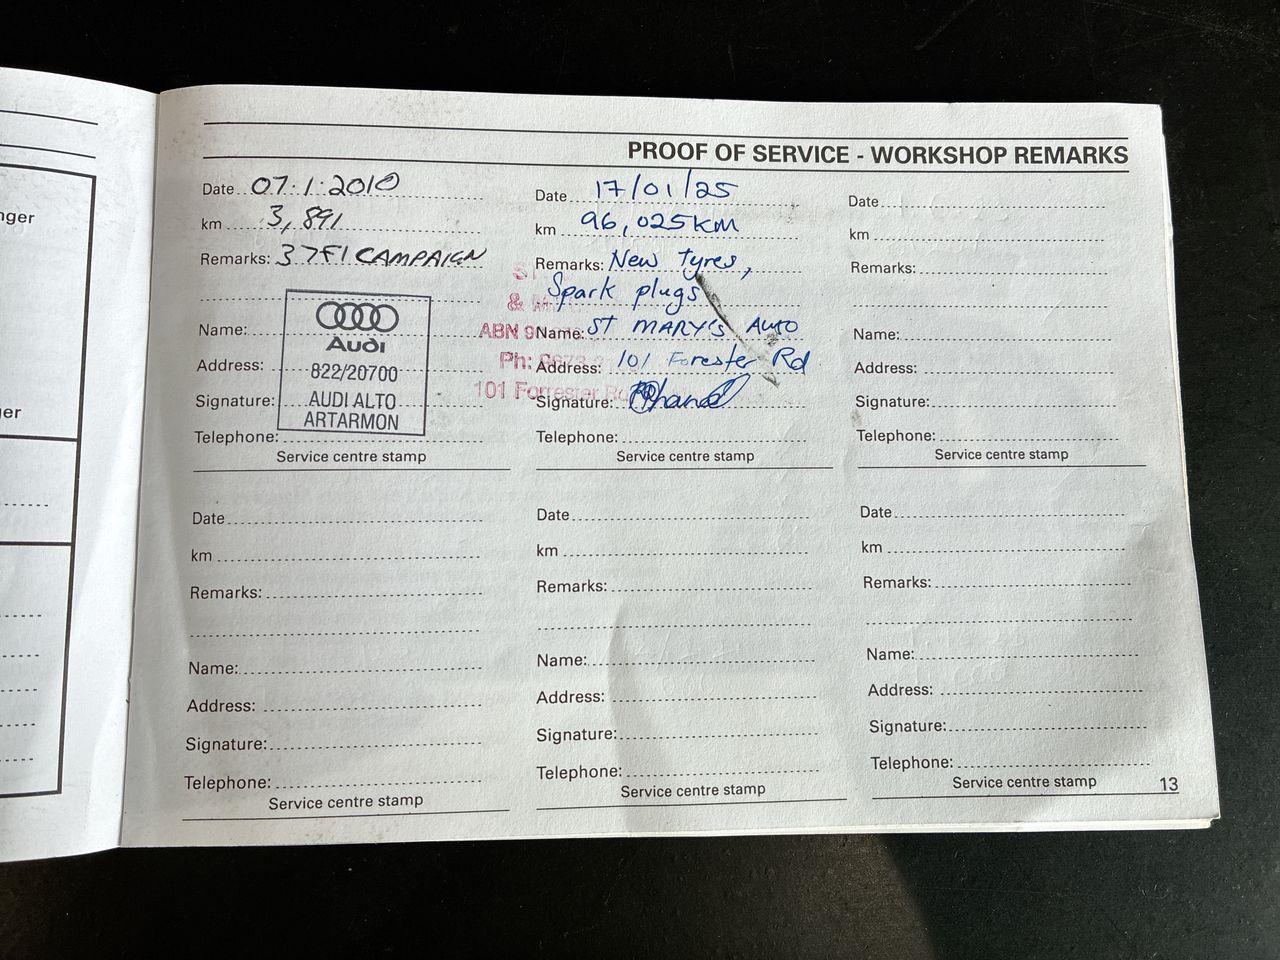 nger
er
PROOF OF SERVICE - WORKSHOP REMARKS
Date 07.1.2010
km 3,891
Remarks: 37F1 CAMPAIGN
Name:
Address:
Signature:
Telephone:
Audi
822/20700
AUDI ALTO
ARTARMON
Service centre stamp
Date 17/01/25
km 96,025KM
Remarks: New Tyres,
Spark plugs
Name: ST MARY'S AUTO
Address: 101 Forester Rd
Signature:
Telephone:
Service centre stamp
ABN
Ph:
101 Forrester
Date
km
Remarks:
Name:
Address:
Signature:
Telephone:
Service centre stamp
Date
km
Remarks:
Name:
Address:
Signature:
Telephone:
Service centre stamp
Date
km
Remarks:
Name:
Address:
Signature:
Telephone:
Service centre stamp
Date
km
Remarks:
Name:
Address:
Signature:
Telephone:
Service centre stamp
13